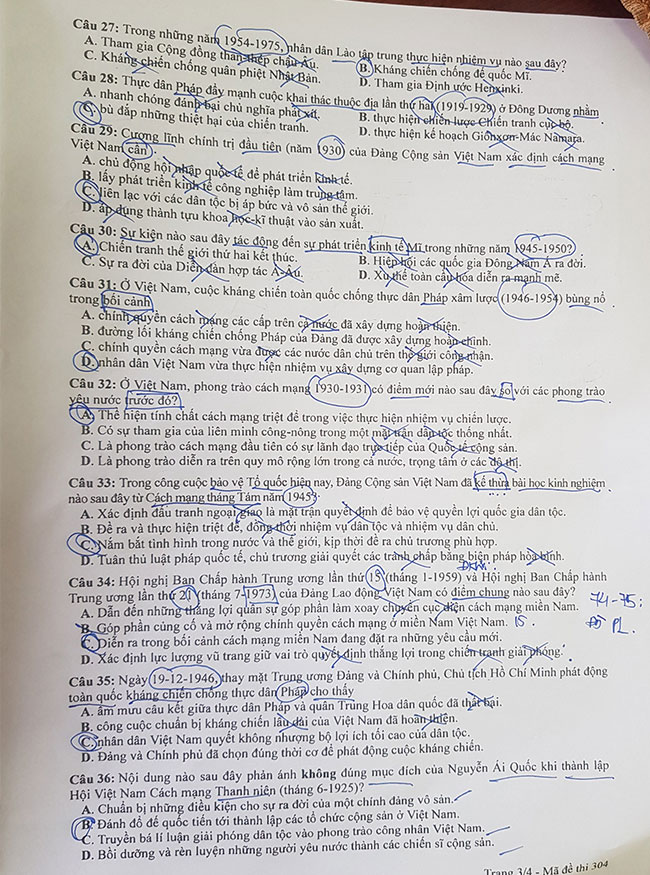 Câu 27: Trong những năm 1954-1975, nhân dân Lào tập trung thực hiện nhiệm vụ nào sau đây?
A. Tham gia Cộng đồng than-thép châu Âu. B. Kháng chiến chống đế quốc Mĩ.
C. Kháng chiến chống quân phiệt Nhật Bản. D. Tham gia Định ước Henxinki.
Câu 28: Thực dân Pháp đẩy mạnh cuộc khai thác thuộc địa lần thứ hai (1919-1929) ở Đông Dương nhằm
A. nhanh chóng đánh bại chủ nghĩa phát xít. B. thực hiện chiến lược Chiến tranh cục bộ.
C. bù đắp những thiệt hại của chiến tranh. D. thực hiện kế hoạch Giônxơn-Mác Namara.
Câu 29: Cương lĩnh chính trị đầu tiên (năm 1930) của Đảng Cộng sản Việt Nam xác định cách mạng
Việt Nam cần
A. chủ động hội nhập quốc tế để phát triển kinh tế.
B. lấy phát triển kinh tế công nghiệp làm trung tâm.
C. liên lạc với các dân tộc bị áp bức và vô sản thế giới.
D. áp dụng thành tựu khoa học-kĩ thuật vào sản xuất.
Câu 30: Sự kiện nào sau đây tác động đến sự phát triển kinh tế Mĩ trong những năm 1945-1950?
A. Chiến tranh thế giới thứ hai kết thúc. B. Hiệp hội các quốc gia Đông Nam Á ra đời.
C. Sự ra đời của Diễn đàn hợp tác Á-Âu. D. Xu thế toàn cầu hóa diễn ra mạnh mẽ.
Câu 31: Ở Việt Nam, cuộc kháng chiến toàn quốc chống thực dân Pháp xâm lược (1946-1954) bùng nổ
trong bối cảnh
A. chính quyền cách mạng các cấp trên cả nước đã xây dựng hoàn thiện.
B. đường lối kháng chiến chống Pháp của Đảng đã được xây dựng hoàn chỉnh.
C. chính quyền cách mạng vừa được các nước dân chủ trên thế giới công nhận.
D. nhân dân Việt Nam vừa thực hiện nhiệm vụ xây dựng cơ quan lập pháp.
Câu 32: Ở Việt Nam, phong trào cách mạng 1930-1931 có điểm mới nào sau đây so với các phong trào
yêu nước trước đó?
A. Thể hiện tính chất cách mạng triệt để trong việc thực hiện nhiệm vụ chiến lược.
B. Có sự tham gia của liên minh công-nông trong một mặt trận dân tộc thống nhất.
C. Là phong trào cách mạng đầu tiên có sự lãnh đạo trực tiếp của Quốc tế cộng sản.
D. Là phong trào diễn ra trên quy mô rộng lớn trong cả nước, trọng tâm ở các đô thị.
Câu 33: Trong công cuộc bảo vệ Tổ quốc hiện nay, Đảng Cộng sản Việt Nam đã kế thừa bài học kinh nghiệm
nào sau đây từ Cách mạng tháng Tám năm 1945?
A. Xác định đấu tranh ngoại giao là mặt trận quyết định để bảo vệ quyền lợi quốc gia dân tộc.
B. Đề ra và thực hiện triệt để, đồng thời nhiệm vụ dân tộc và nhiệm vụ dân chủ.
C. Nắm bắt tình hình trong nước và thế giới, kịp thời đề ra chủ trương phù hợp.
D. Tuân thủ luật pháp quốc tế, chủ trương giải quyết các tranh chấp bằng biện pháp hòa bình.
Câu 34: Hội nghị Ban Chấp hành Trung ương lần thứ 15 (tháng 1-1959) và Hội nghị Ban Chấp hành
Trung ương lần thứ 21 (tháng 7-1973) của Đảng Lao động Việt Nam có điểm chung nào sau đây?
A. Dẫn đến những thắng lợi quân sự góp phần làm xoay chuyển cục diện cách mạng miền Nam. 74-75:
B. Góp phần củng cố và mở rộng chính quyền cách mạng ở miền Nam Việt Nam. 15. PL.
C. Diễn ra trong bối cảnh cách mạng miền Nam đang đặt ra những yêu cầu mới.
D. Xác định lực lượng vũ trang giữ vai trò quyết định thắng lợi trong chiến tranh giải phóng.
Câu 35: Ngày 19-12-1946, thay mặt Trung ương Đảng và Chính phủ, Chủ tịch Hồ Chí Minh phát động
toàn quốc kháng chiến chống thực dân Pháp cho thấy
A. âm mưu câu kết giữa thực dân Pháp và quân Trung Hoa dân quốc đã thất bại.
B. công cuộc chuẩn bị kháng chiến lâu dài của Việt Nam đã hoàn thiện.
C. nhân dân Việt Nam quyết không nhượng bộ lợi ích tối cao của dân tộc.
D. Đảng và Chính phủ đã chọn đúng thời cơ để phát động cuộc kháng chiến.
Câu 36: Nội dung nào sau đây phản ánh không đúng mục đích của Nguyễn Ái Quốc khi thành lập
Hội Việt Nam Cách mạng Thanh niên (tháng 6-1925)?
A. Chuẩn bị những điều kiện cho sự ra đời của một chính đảng vô sản.
B. Đánh đổ đế quốc tiến tới thành lập các tổ chức cộng sản ở Việt Nam.
C. Truyền bá lí luận giải phóng dân tộc vào phong trào công nhân Việt Nam.
D. Bồi dưỡng và rèn luyện những người yêu nước thành các chiến sĩ cộng sản.
Trang 3/4 - Mã đề thi 304